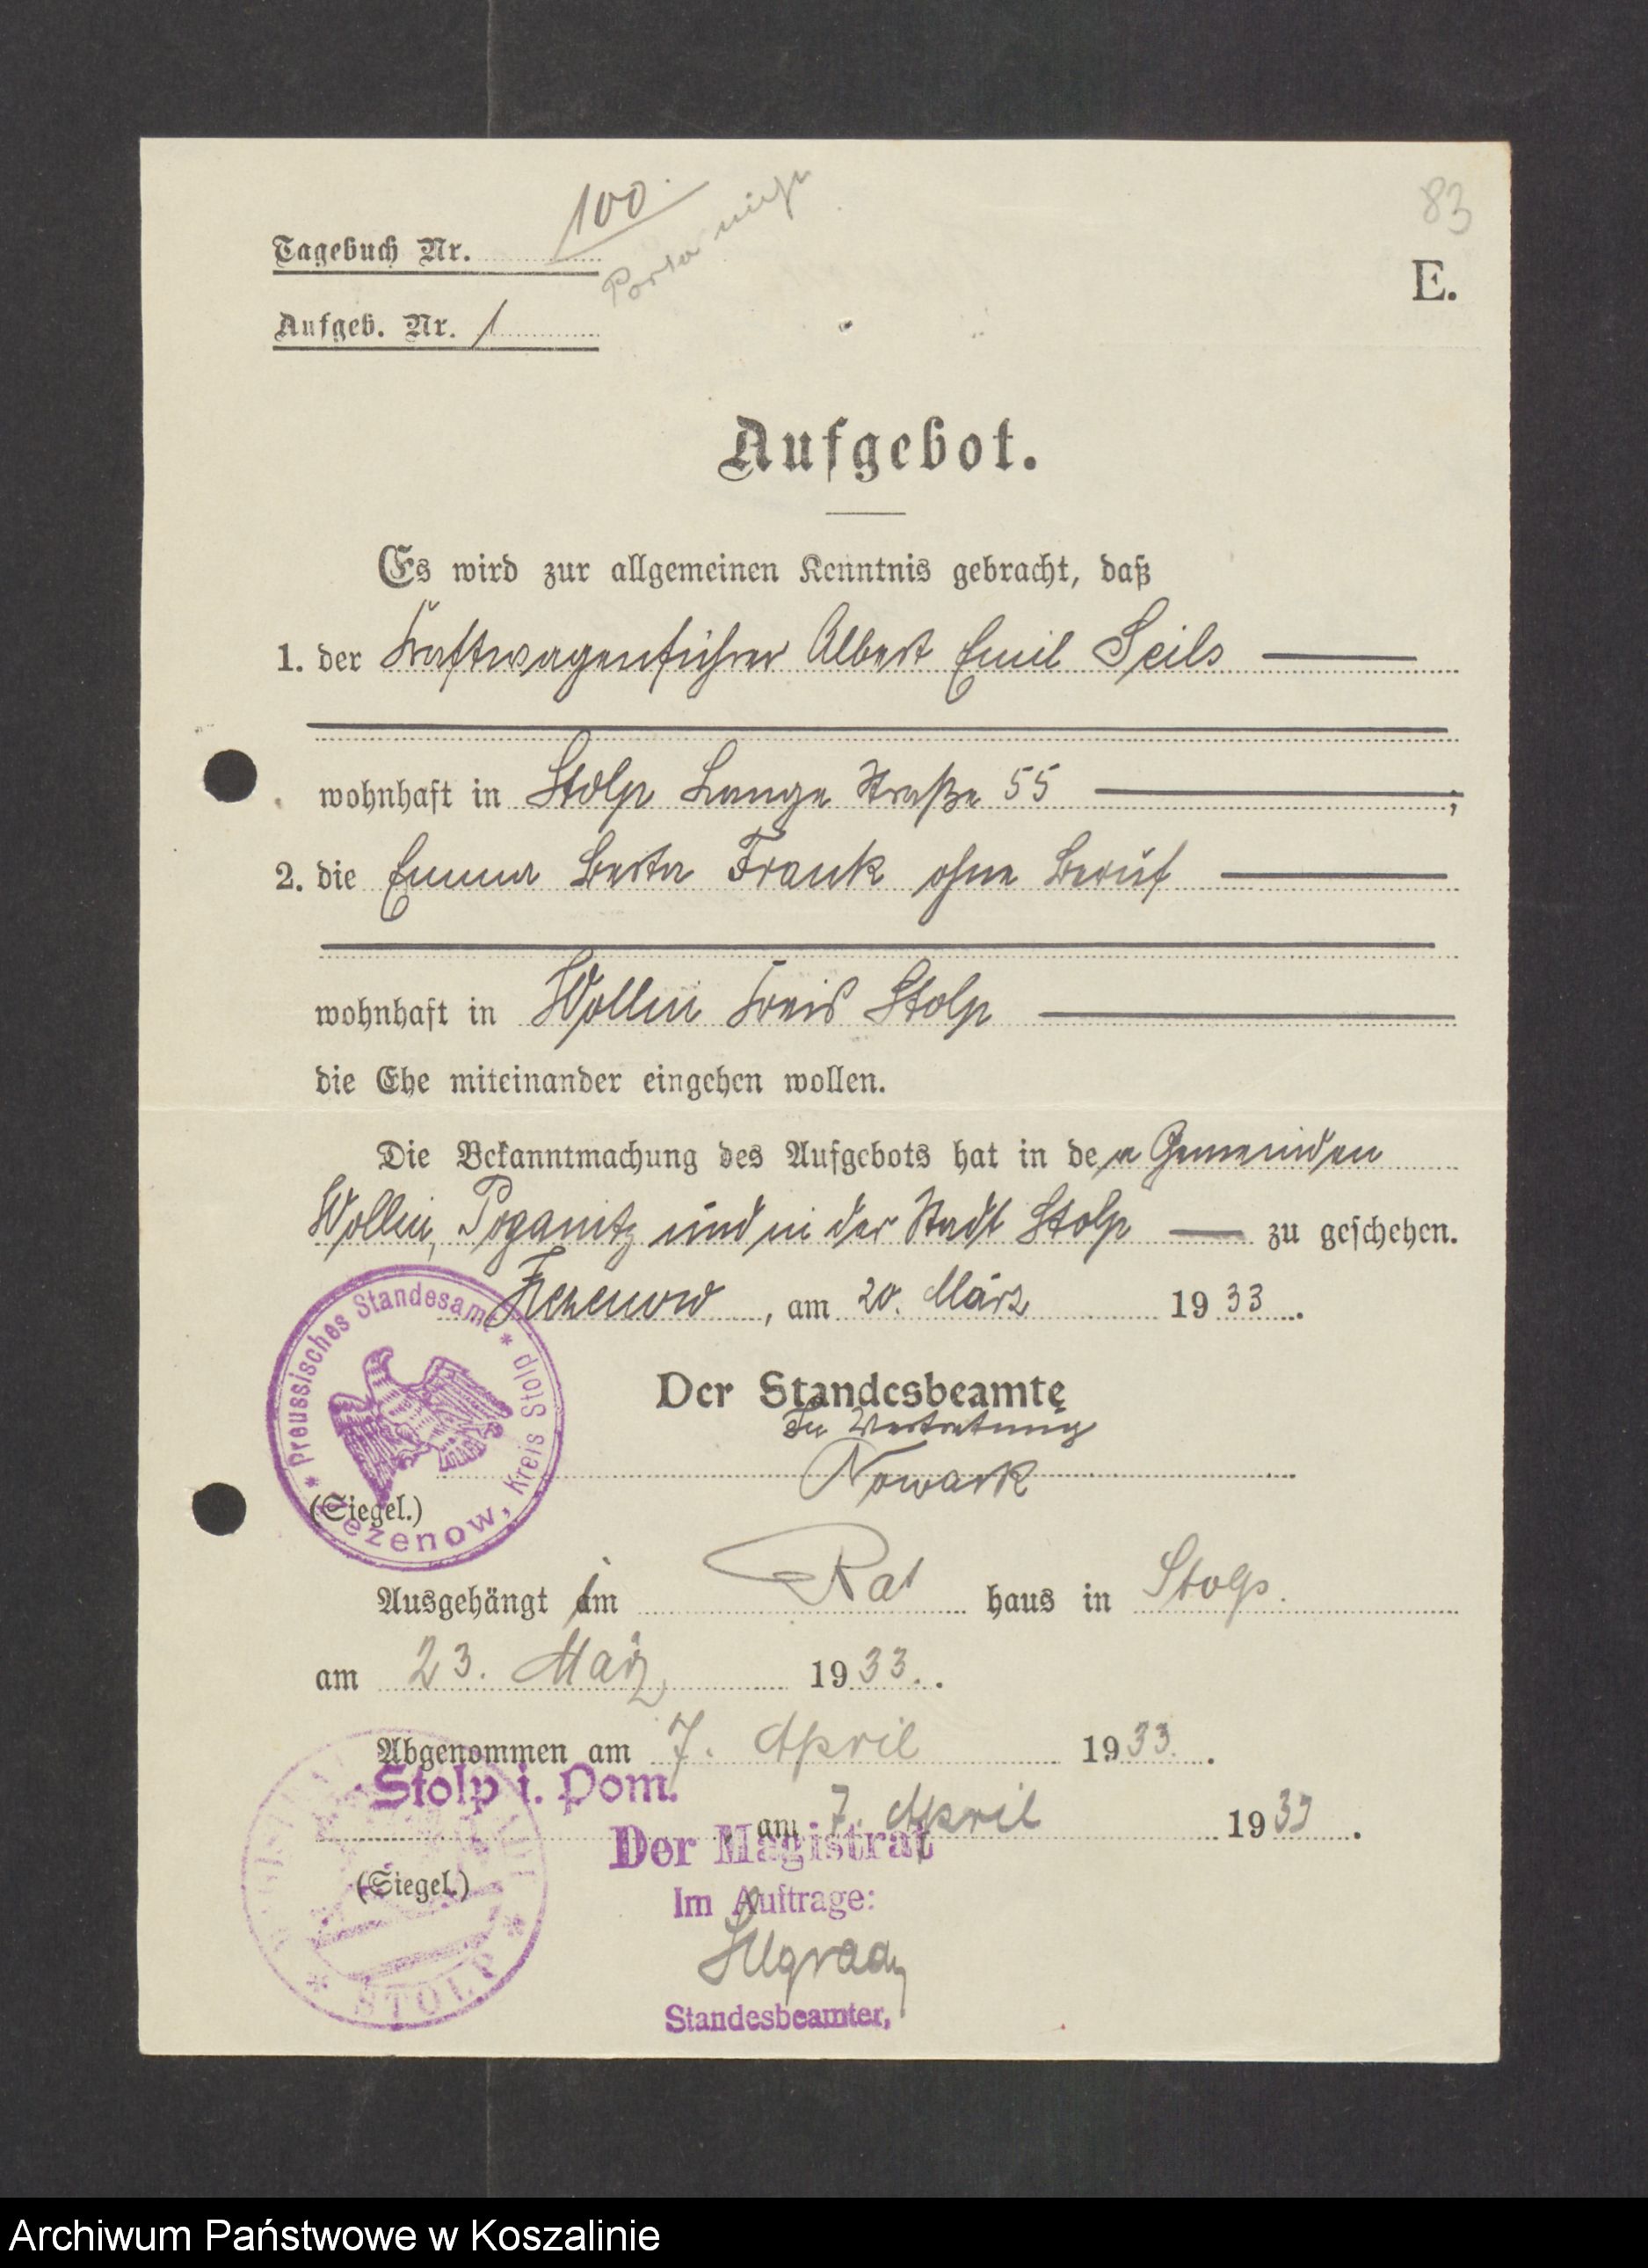 83
100
Tagebuch Nr.
E.
Aufgeb. Nr. 1
Aufgebot.
Es wird zur allgemeinen Kenntnis gebracht, daß
1. der Kraftwagenführer Albert Emil Seils
wohnhaft in Stolp Lange Straße 55 ;
2. die Emma Berta Frank ohne Beruf
wohnhaft in Wollin Kreis Stolp
die Ehe miteinander eingehen wollen.
Die Bekanntmachung des Aufgebots hat in den Gemeinden
Wollin, Poganitz und in der Stadt Stolp zu geschehen.
Rezenow, am 20. März 1933.
* Preussisches Standesamt * Rezenow, Kreis Stolp
Der Standesbeamte
In Vertretung
Nowack
(Siegel.)
Ausgehängt im Rathaus in Stolp.
am 23. März 1933.
Abgenommen am 7. April 1933.
Stolp i. Pom.
, am 7. April 1933.
Der Magistrat
(Siegel.)
Im Auftrage:
* STOLP *
Standesbeamter,
Archiwum Państwowe w Koszalinie